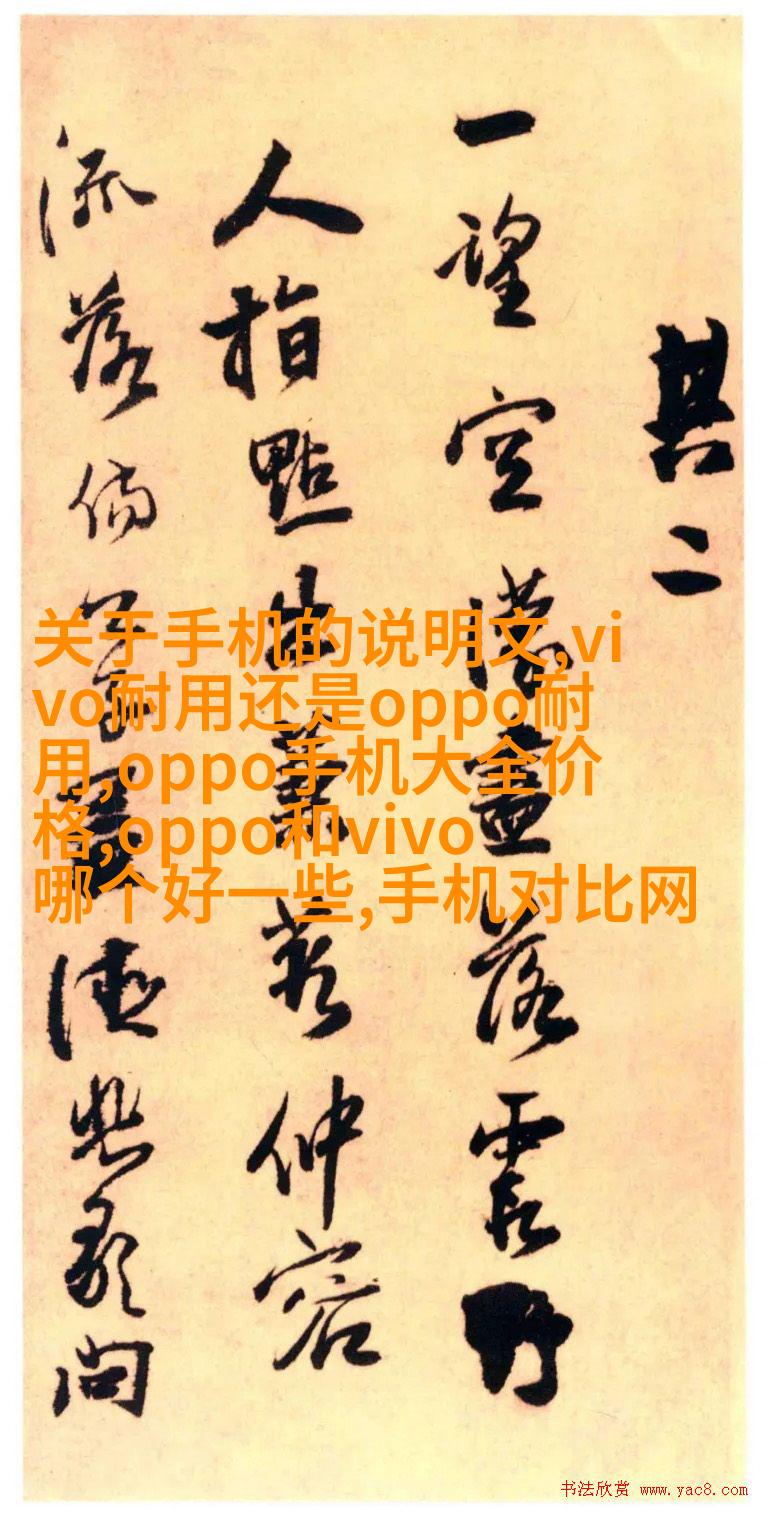 其二
一望空濛盡落霞野
人指點出仲容
流落問
关于手机的说明文,vi
vo耐用还是oppo耐
用,oppo手机大全价
格,oppo和vivo
哪个好一些,手机对比网
书法欣赏 www.yac8.com